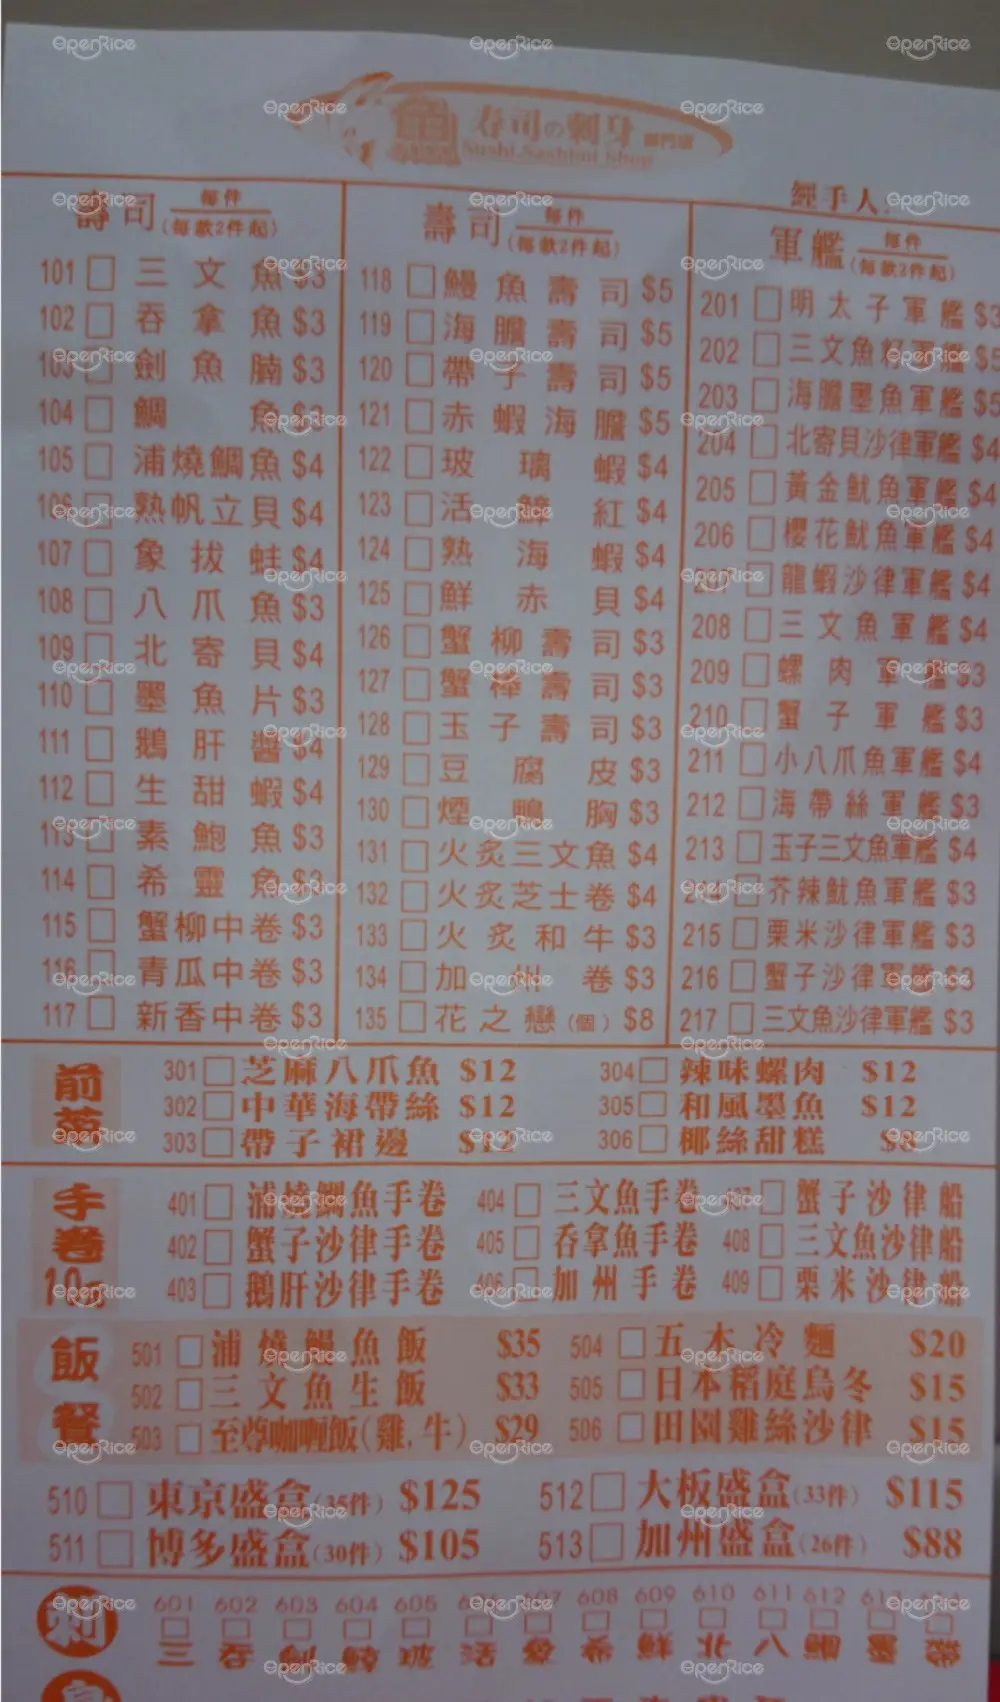 壽司の刺身專門店
Sushi.Sashimi Shop
經手人:
壽司 每件(每款2件起)
101 三文魚 $3
102 吞拿魚 $3
103 劍魚腩 $3
104 鯛魚 $3
105 浦燒鯛魚 $4
106 熟帆立貝 $4
107 象拔蚌 $4
108 八爪魚 $3
109 北寄貝 $4
110 墨魚片 $3
111 鵝肝醬 $4
112 生甜蝦 $4
113 素鮑魚 $3
114 希靈魚 $3
115 蟹柳中卷 $3
116 青瓜中卷 $3
117 新香中卷 $3
壽司 每件(每款2件起)
118 鰻魚壽司 $5
119 海膽壽司 $5
120 帶子壽司 $5
121 赤蝦海膽 $5
122 玻璃蝦 $4
123 活鯡紅 $4
124 熟海蝦 $4
125 鮮赤貝 $4
126 蟹柳壽司 $3
127 蟹棒壽司 $3
128 玉子壽司 $3
129 豆腐皮 $3
130 煙鴨胸 $3
131 火炙三文魚 $4
132 火炙芝士卷 $4
133 火炙和牛 $3
134 加州卷 $3
135 花之戀(個) $8
軍艦 每件(每款2件起)
201 明太子軍艦 $3
202 三文魚籽軍艦 $5
203 海膽墨魚軍艦 $5
204 北寄貝沙律軍艦 $4
205 黃金魷魚軍艦 $4
206 櫻花魷魚軍艦 $4
207 龍蝦沙律軍艦 $4
208 三文魚軍艦 $4
209 螺肉軍艦 $3
210 蟹子軍艦 $3
211 小八爪魚軍艦 $4
212 海帶絲軍艦 $3
213 玉子三文魚軍艦 $4
214 芥辣魷魚軍艦 $3
215 栗米沙律軍艦 $3
216 蟹子沙律軍艦 $3
217 三文魚沙律軍艦 $3
前菜
301 芝麻八爪魚 $12
302 中華海帶絲 $12
303 帶子裙邊 $12
304 辣味螺肉 $12
305 和風墨魚 $12
306 椰絲甜糕 $8
手卷
401 浦燒鯛魚手卷
402 蟹子沙律手卷
403 鵝肝沙律手卷
404 三文魚手卷
405 吞拿魚手卷
406 加州手卷
407 蟹子沙律船
408 三文魚沙律船
409 栗米沙律船
飯餐
501 浦燒鰻魚飯 $35
502 三文魚生飯 $33
503 至尊咖喱飯(雞,牛) $29
504 五木冷麵 $20
505 日本稻庭烏冬 $15
506 田園雞絲沙律 $15
510 東京盛盒(35件) $125
511 博多盛盒(30件) $105
512 大板盛盒(33件) $115
513 加州盛盒(26件) $88
刺
601 602 603 604 605 606 607 608 609 610 611 612 613 614